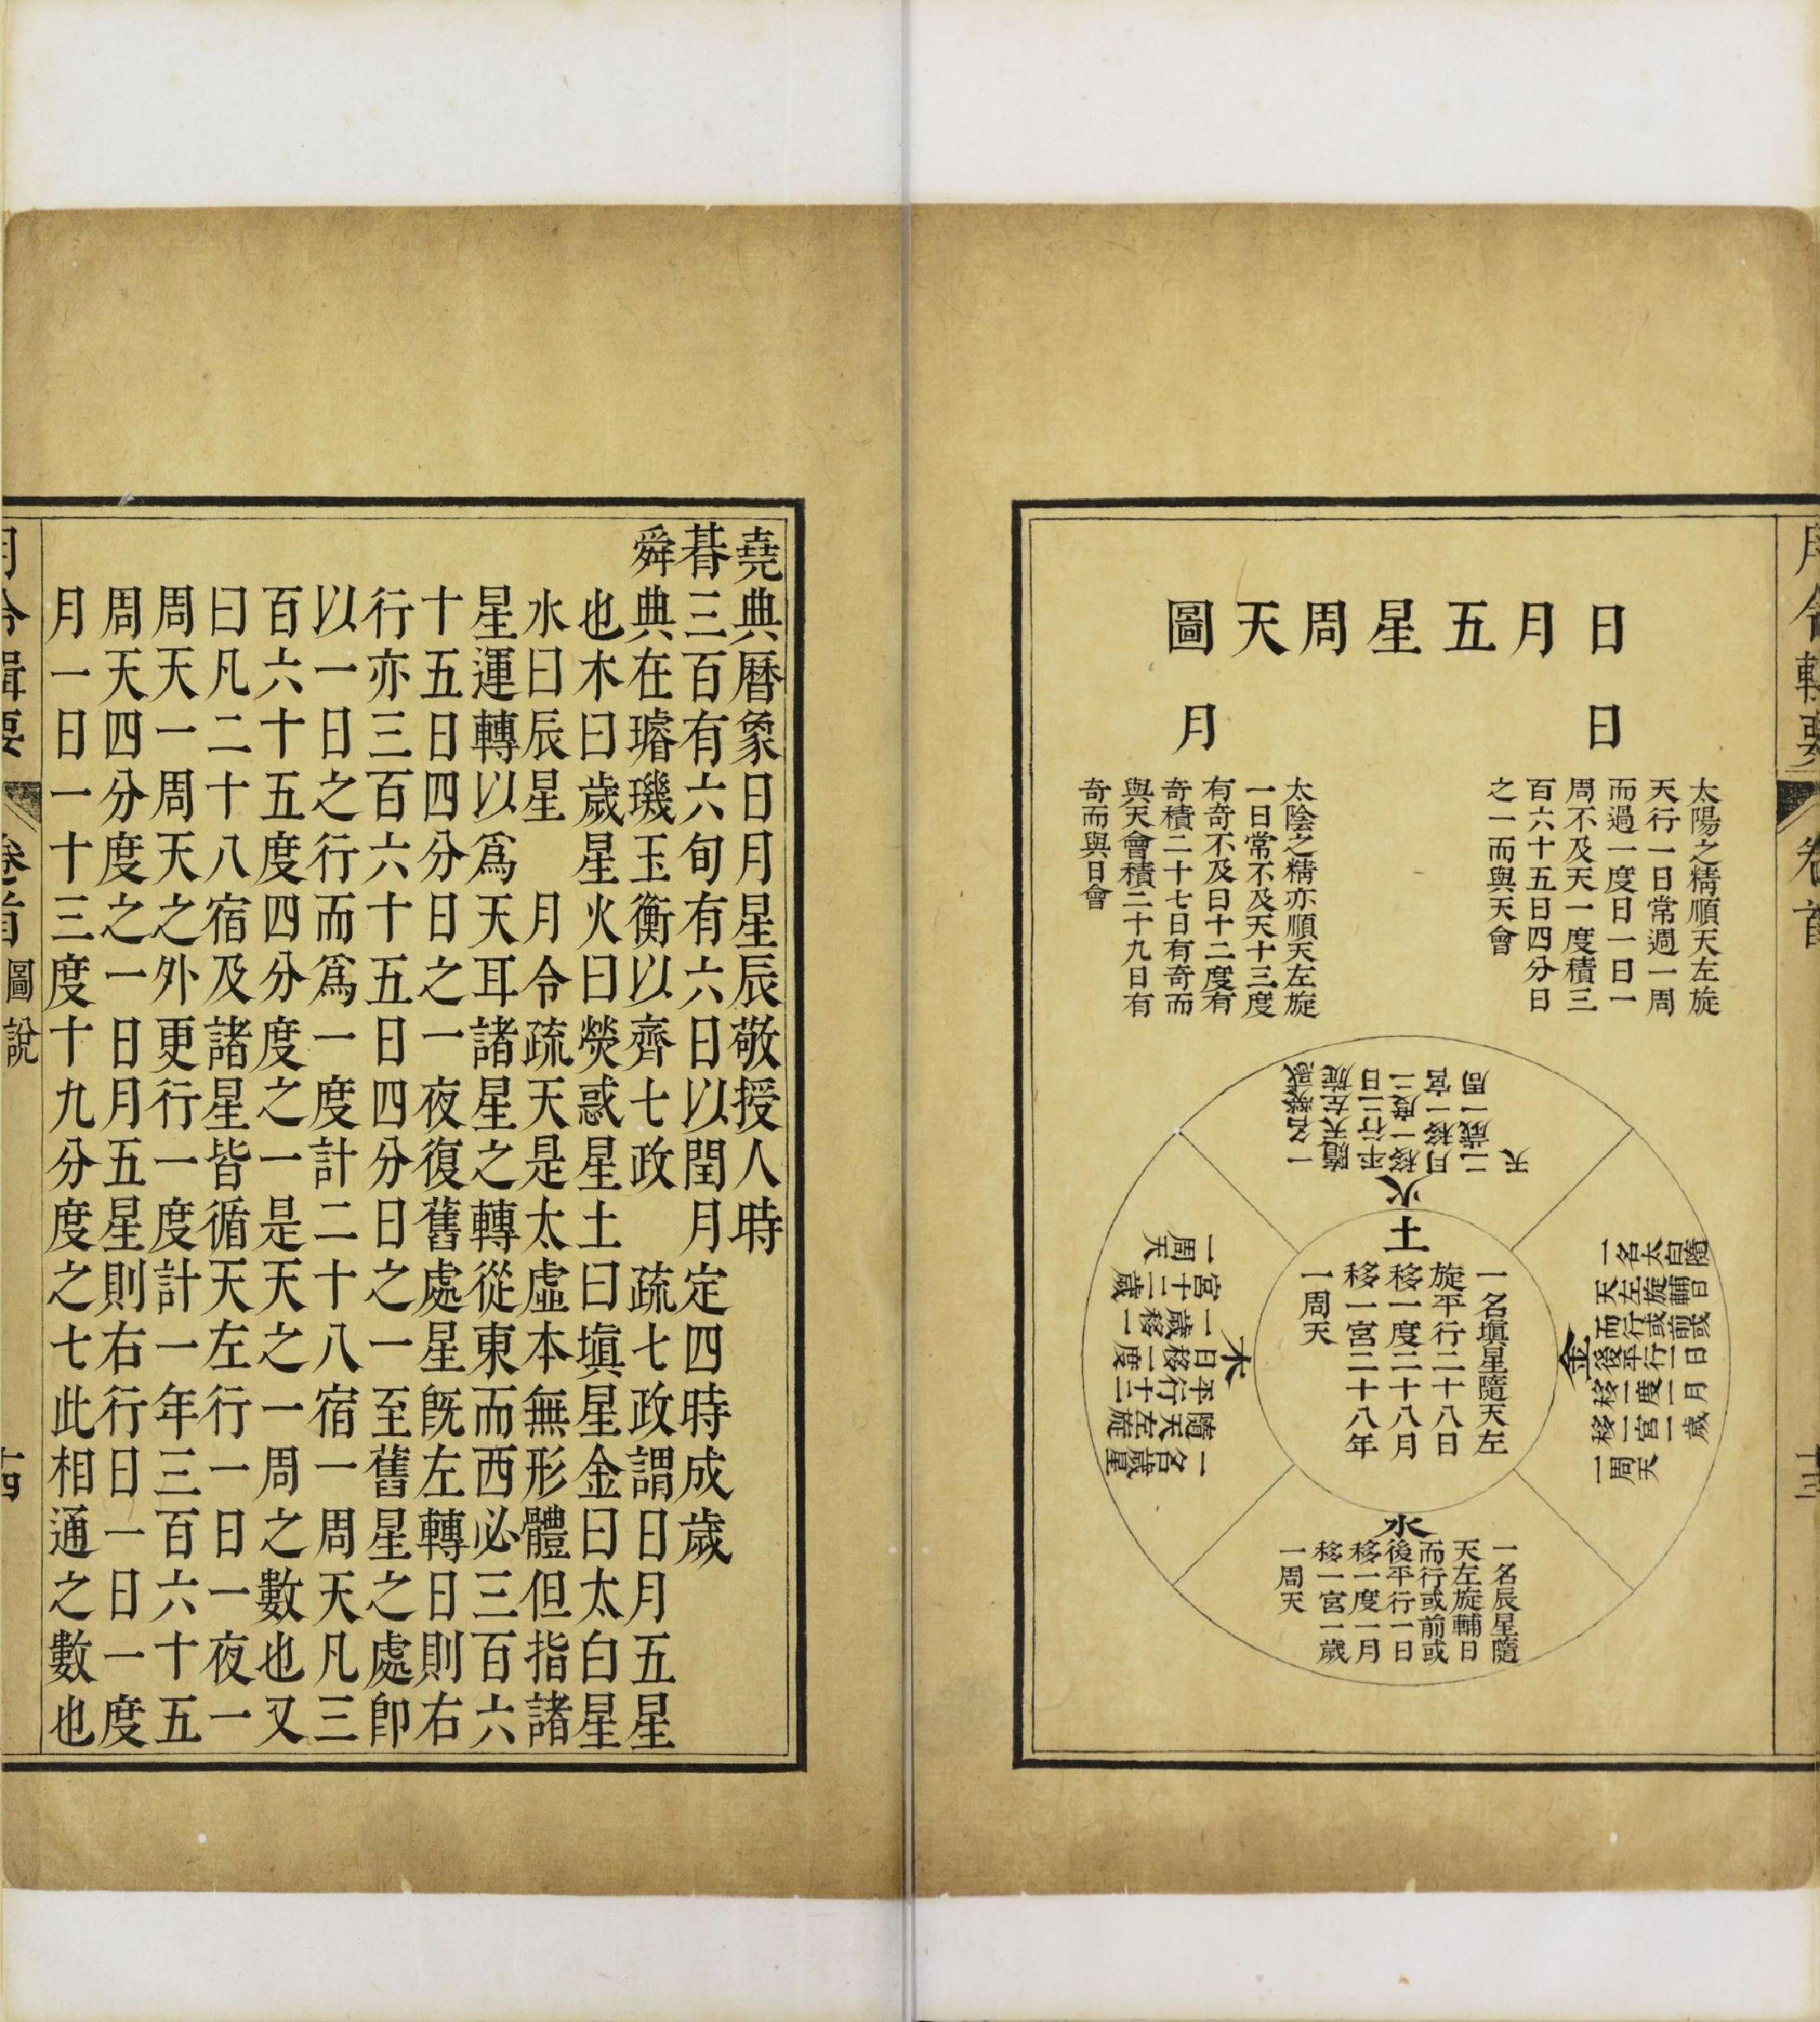 月令輯要 卷首 十三
日月五星周天圖
日
太陽之精順天左旋
天行一日常週一周
而過一度日一日一
周不及天一度積三
百六十五日四分日
之一而與天會
月
太陰之精亦順天左旋
一日常不及天十三度
有奇不及日十二度有
奇積二十七日有奇而
與天會積二十九日有
奇而與日會
火
一名熒惑
隨天左旋
平行二日
移一度二
月移一宮
二歲一周
天
土
一名塡星隨天左
旋平行二十八日
移一度二十八月
移一宮二十八年
一周天
金
一名太白隨
天左旋輔日
而行或前或
後平行一日
移一度一月
移一宮一歲
一周天
木
一名歲星
隨天左旋
平行十二
日移一度
一歲移一
宮十二歲
一周天
水
一名辰星隨
天左旋輔日
而行或前或
後平行一日
移一度一月
移一宮一歲
一周天
堯典曆象日月星辰敬授人時
朞三百有六旬有六日以閏月定四時成歲
舜典在璿璣玉衡以齊七政 疏七政謂日月五星
也木曰歲星火曰熒惑星土曰塡星金曰太白星
水曰辰星 月令疏天是太虛本無形體但指諸
星運轉以爲天耳諸星之轉從東而西必三百六
十五日四分日之一夜復舊處星旣左轉日則右
行亦三百六十五日四分日之一至舊星之處卽
以一日之行而爲一度計二十八宿一周天凡三
百六十五度四分度之一是天之一周之數也又
曰凡二十八宿及諸星皆循天左行一日一夜一
周天一周天之外更行一度計一年三百六十五
周天四分度之一日月五星則右行日一日一度
月一日一十三度十九分度之七此相通之數也
月令輯要 卷首 圖說 十四